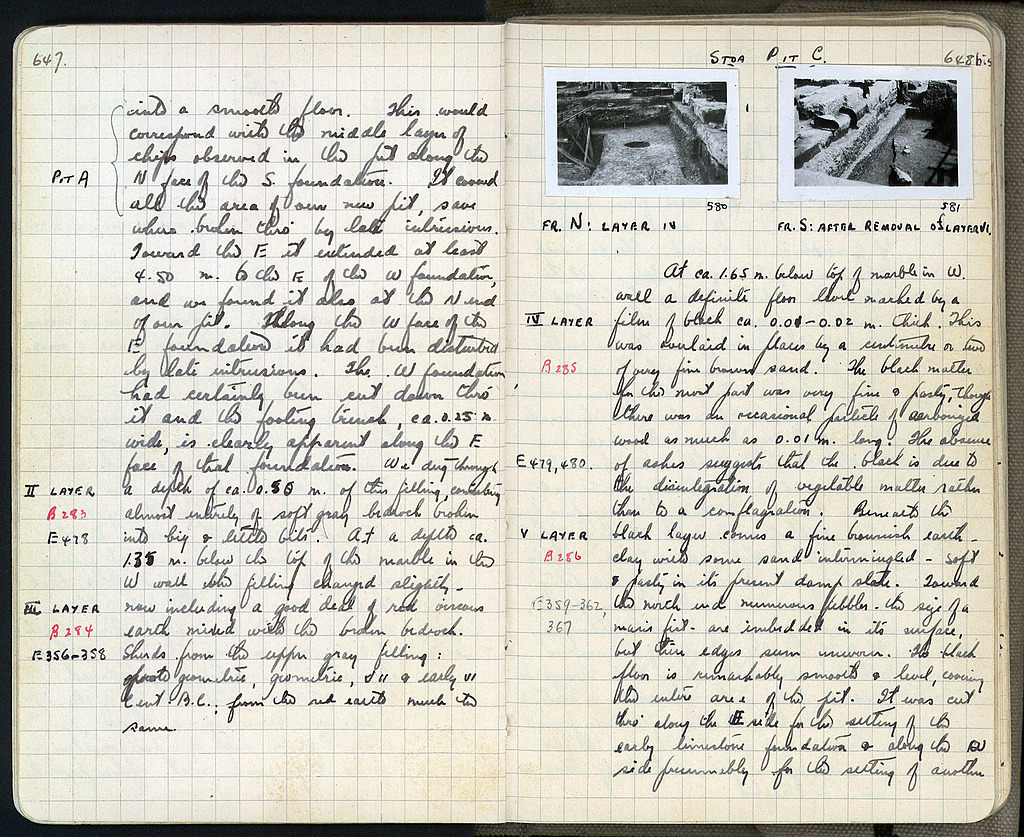 647.
into a smooth floor. This would
correspond with the middle layer of
chips observed in the pit along the
PIT A
N face of the S. foundation. It covered
all the area of our new pit, save
where broken thro' by late intrusions.
Toward the E it extended at least
4.50 m. to the E of the W foundation,
and we found it also at the N end
of our pit. Along the W face of the
E foundation it had been disturbed
by late intrusions. The W foundation
had certainly been cut down thro'
it and the footing trench, ca. 0.25 m
wide, is clearly apparent along the E
face of that foundation. We dug through
II LAYER
a depth of ca. 0.50 m. of this filling, consisting
B 283
almost entirely of soft gray bedrock broken
E 478
into big & little bits. At a depth ca.
1.35 m. below the top of the marble in the
W wall the filling changed slightly -
III LAYER
now including a good deal of red viscous
B 284
earth mixed with the broken bedrock.
E 356-358
Sherds from the upper gray filling:
geometric, geometric, VII & early VI
Cent. B.C., from the red earth much the
same.
STOA PIT C.
648bis
580
581
FR. N: LAYER IV
FR. S: AFTER REMOVAL OF LAYER VI.
At ca. 1.65 m. below top of marble in W.
wall a definite floor level marked by a
IV LAYER
film of black ca. 0.01-0.02 m. thick. This
was overlaid in places by a centimetre or two
B 285
of very fine brown sand. The black matter
for the most part was very fine & pasty, though
there was an occasional particle of carbonized
wood as much as 0.01 m. long. The absence
E 479, 480.
of ashes suggests that the black is due to
the disintegration of vegetable matter rather
than to a conflagration. Beneath the
V LAYER
black layer comes a fine brownish earth -
B 286
clay with some sand intermingled - soft
& pasty in its present damp state. Toward
E 359-362,
the north end numerous pebbles - the size of a
367
man's fist - are imbedded in its surface,
but their edges seem unworn. The black
floor is remarkably smooth & level, covering
the entire area of the pit. It was cut
thro' along the E side for the setting of the
early limestone foundation & along the W
side presumably for the setting of another